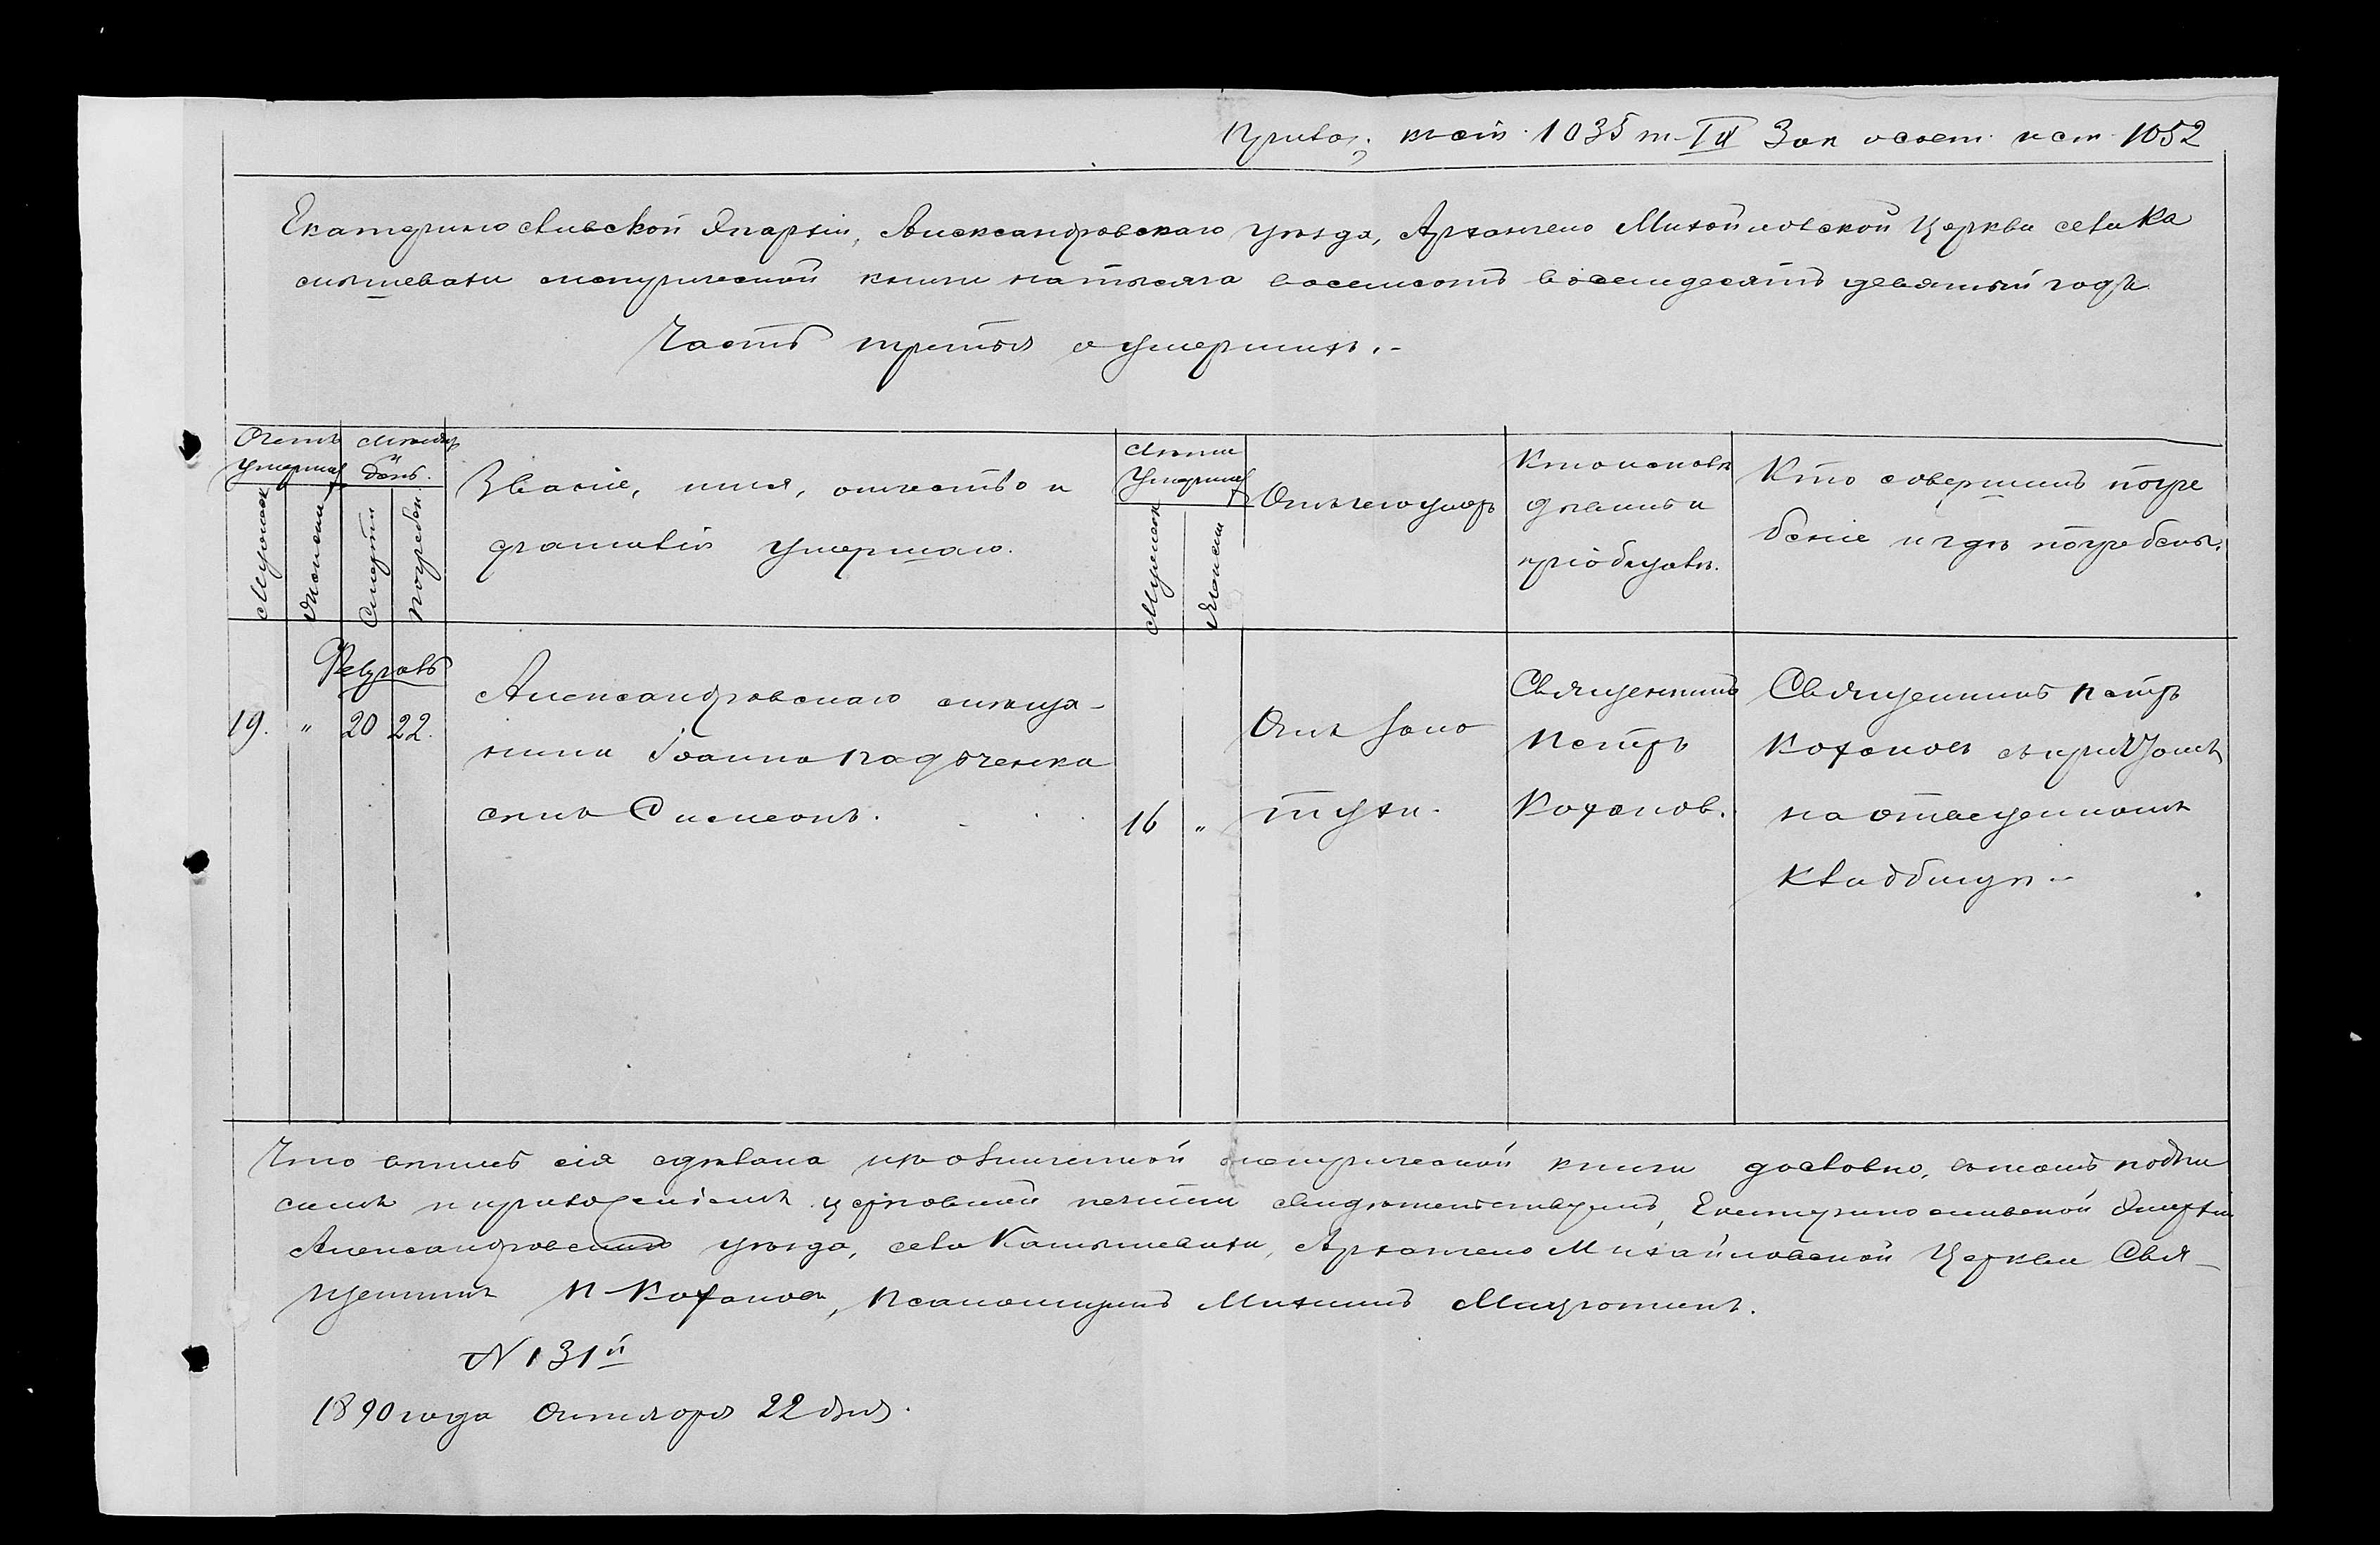 Прилож. къ ст. 1035 т. IX Зак о сост. и ст 1052
Екатеринославской Епархіи, Александровскаго уѣзда, Архангело Михайловской Церкви села Ка
мышевати метрической книги на тысяча восемсотъ восемдесятъ девятый годъ.
Часть третья о умершихъ.-
Счетъ умершихъ
Мѣсяцъ и день.
Мужеск
Женски
Смерти
Погребен
Званіе, имя, отчество и
фамилія умершаго.
Лѣта Умершихъ
Мужеск
Женски
Отъ чего умеръ
Кто исповѣ
дывалъ и
пріобщалъ.
Кто совершилъ погре
беніе и гдѣ погребены.
Февраль
19. " 20 22.
Александровскаго мѣща-
нина Іоанна
сынъ Симеонъ.
16 "
Отъ
Священникъ
Петръ
Коханов.
Священникъ Петръ
Кохановъ
на отведенномъ
кладбищѣ.-
Что выпись сія сдѣлана изъ означенной метрической книги дословно, въ томъ подпи
семъ и приложеніемъ церковной печати свидѣтельствуемъ, Екатеринославской Епархіи
Александровскаго уѣзда, села Камышевати, Архангело Михайловской Церкви Свя-
щенникъ П. Кохановъ, Псаломщикъ Михаилъ
N 131й
1890 года Октября 22 дня.